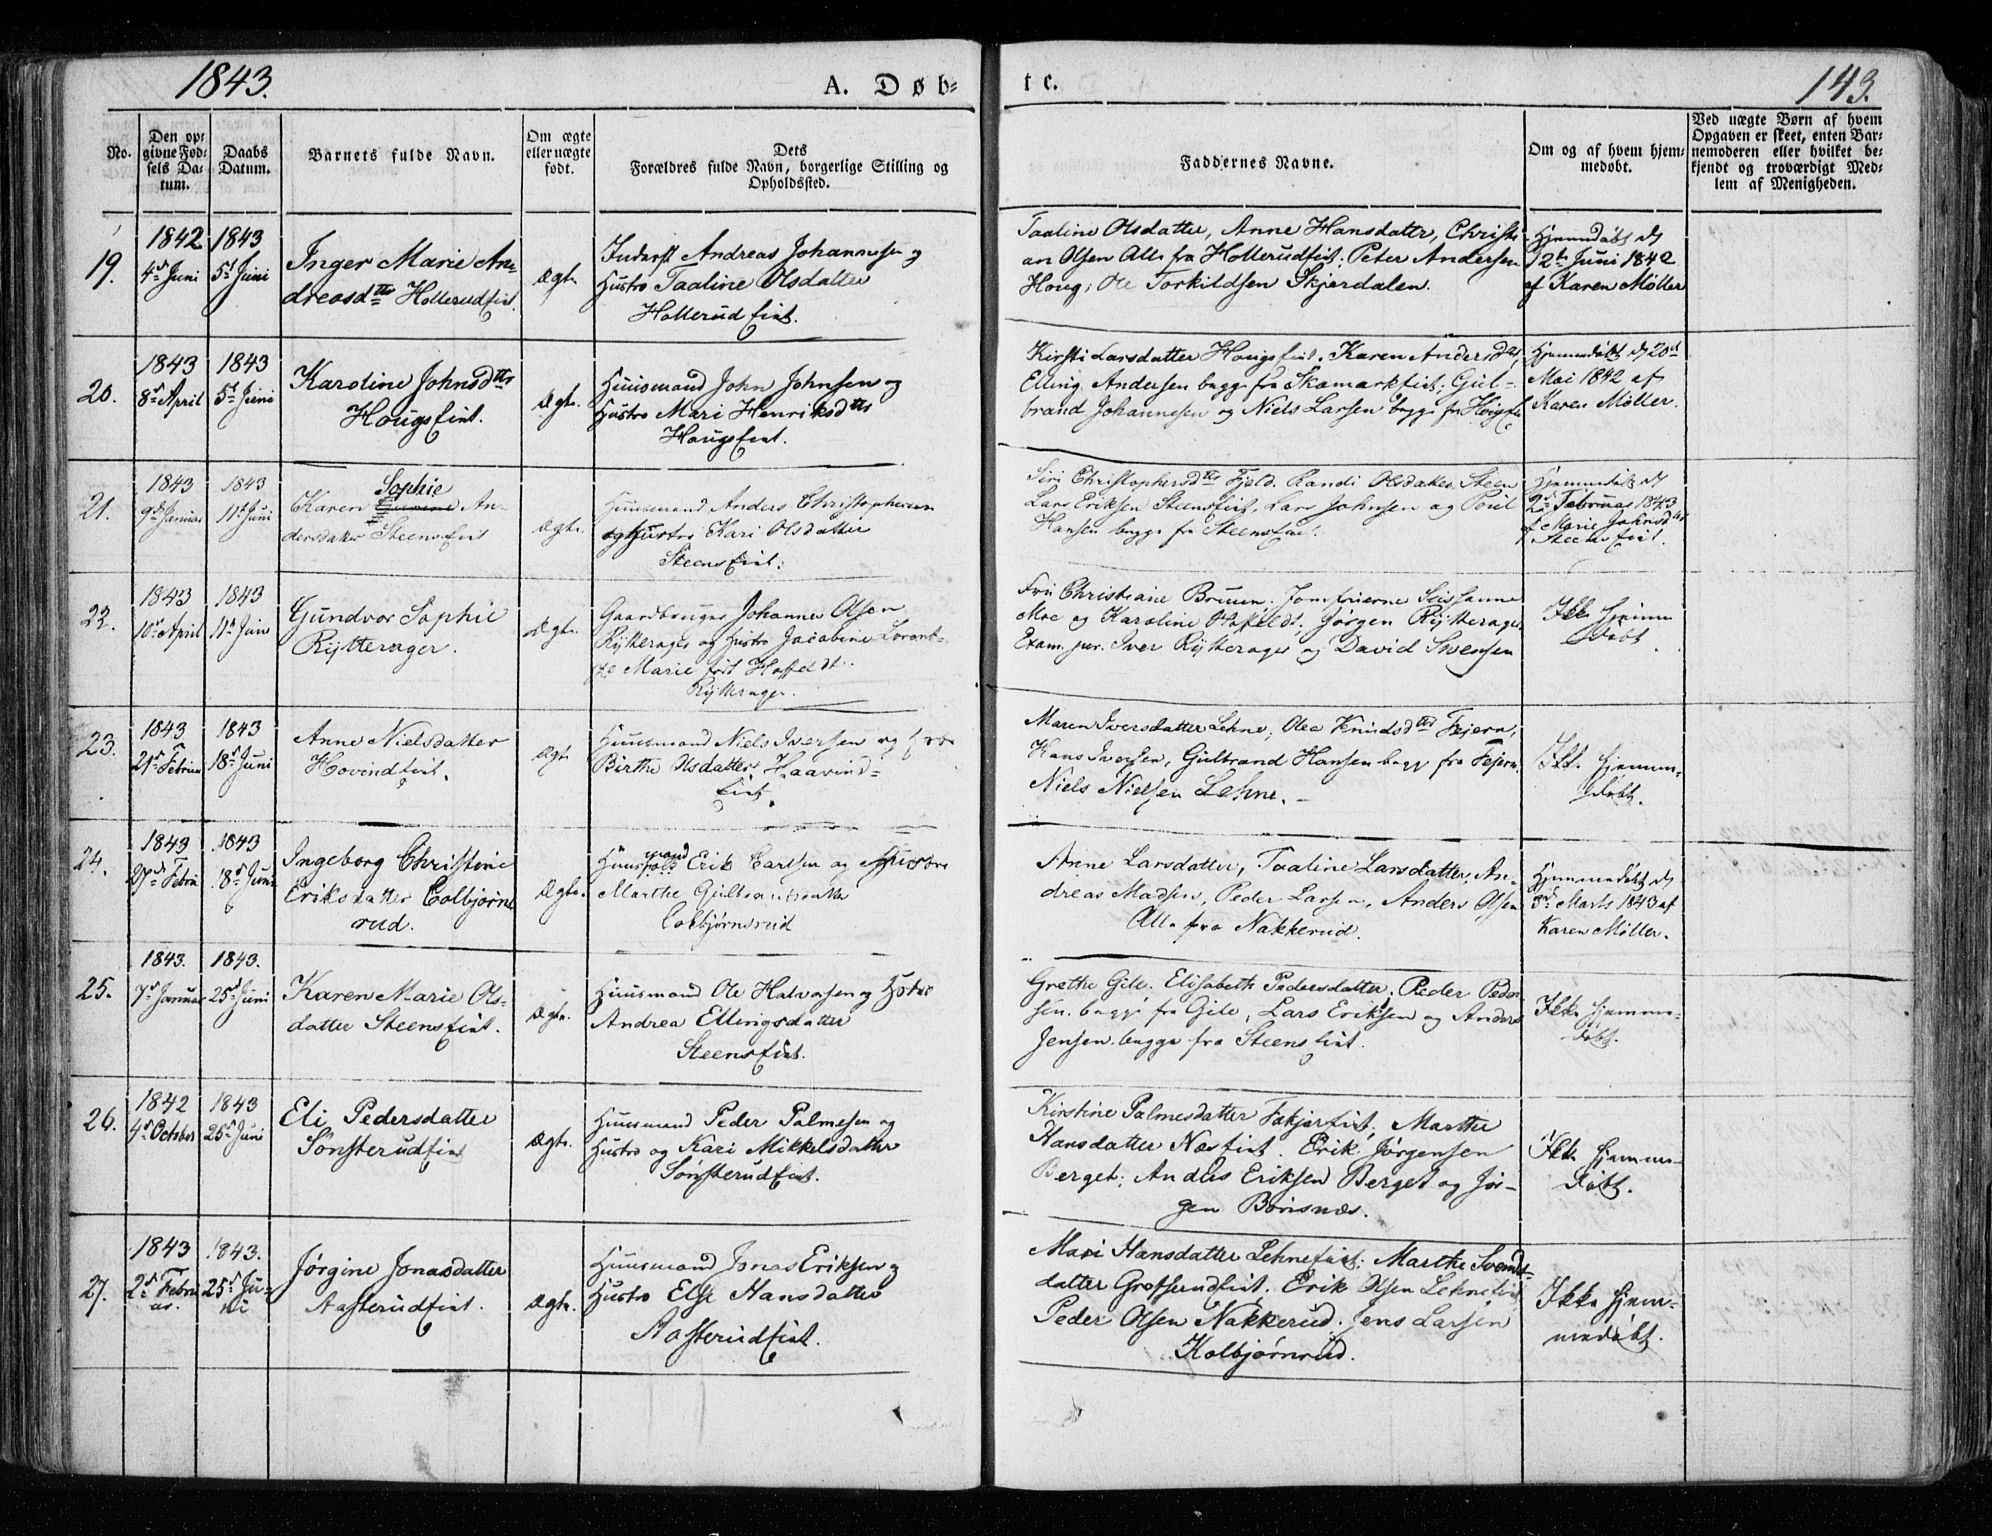 1843.
A. Døb-
te.
143.
No.
Den op-
givne Fød-
sels Da-
tum.
Daabs
Datum.
Barnets fulde Navn.
Om ægte
eller uægte
født.
Dets
Forældres fulde Navn, borgerlige Stilling og
Opholdssted.
Faddernes Navne.
Om og af hvem hjem-
medøbt.
Ved uægte Børn af hvem
Opgaven er skeet, enten Bar-
nemoderen eller hvilket be-
kjendt og troværdigt Med-
lem af Menigheden.
19.
1842
4de Juni
1843
5te Juni
Inger Marie An-
dreasdtr Hollerudeiet.
Ægte.
Inderst Andreas Johannesen og
Hustro Taaline Olsdatter
Hollerud Eiet.
Taaline Olsdatter, Anne Hansdatter, Christi-
an Olsen Alle fra Hollerudeiet. Peter Andersen
Houg, Ole Torkildsen Skjerdalen.
Hjemmdøbt d
12te Juni 1842
af Karen Møller
20.
1843
8de April
1843
5te Juni
Karoline Johnsdtr
Hougseiet.
Ægte.
Huusmand John Johnsen og
Hustro Mari Henriksdtr
Hougseiet.
Kirsti Larsdatter Hougseiet. Karen Andersdtr,
Elling Andersen begge fra Skamarkeiet; Gul-
brand Johannesen og Niels Larsen begge fra
Hjemmdøbt d 20de
Mai 1842 af
Karen Møller.
21.
1843
9de Januar
1843
11te Juni
Sophie
Karen An-
dersdatter Steenseiet
Ægte.
Huusmand Anders Christophersen
og Hustro Kari Olsdatter
Steenseiet.
Siri Christophersdtr Fjeld. Randi Olsdatter Steen
Lars Eriksen Steenseiet, Lars Johnsen og Poul
Hansen begge fra Steenseiet.
Hjemmdøbt d
2den Februar 1843
af Marie Johnsdtr
Steenseiet.
22.
1843
10de April
1843
11te Juni
Gundvor Sophie
Rytterager.
Ægte.
Gaardbruger Johannes Olsen
Rytterager og Hustro Jacobine Lorent-
ze Marie født Hoffeldt.
Rytterager.
Fru Christiane Bruun, Jomfruerne Susanne
Moe og Karoline Hoffeldt, Jørgen Rytterager
Exam. jur. Iver Rytterager og David Svensen
Ikke hjemme
døbt.
23.
1843
21de Februar
1843
18de Juni
Anne Nielsdatter
Hovindeiet.
Ægte
Huusmand Niels Iversen og
Birthe Olsdatter Haavind-
eiet.
Maren Iversdatter Lehne, Olea Knudsdtr Fejern,
Hans Iversen, Gulbrand Hansen begge fra Fejern.
Niels Nielsen Lehne.
Ikke hjemme-
døbt.
24.
1843
27de Febru
1843
18de Juni
Ingeborg Christine
Eriksdatter Colbjørns
rud.
Ægte.
mand
Erik Carlsen og Hustro
Marthe Gulbrandsdatter
Colbjørnsrud
Anne Larsdatter, Taaline Larsdatter, An-
dreas Madsen, Peder Larsen, Anders Olsen
Alle fra Nakkerud.
Hjemmedøbt d
3de Marts 1843 af
Karen Møller.
25.
1843.
7de Januar
1843.
25de Juni
Karen Marie Ols-
datter Steenseiet.
Ægte.
Huusmand Ole Halvorsen og Hustro
Andrea Ellingsdatter
Steenseiet.
Grethe Gile. Elisabeth Pedersdatter. Peder Peder
sen. begge fra Gile, Lars Eriksen og Anders
Jensen. begge fra Steenseiet.
Ikke hjemme-
døbt.
26.
1842
4de October
1843
25de Juni
Eli Pedersdatter
Sønsterudeiet
Ægte.
Huusmand Peder Palmesen og
Hustro og Kari Mikkelsdatter
Sønsterudeiet.
Kirstine Palmesdatter Fakjereiet; Marthe
Hansdatter Næseiet. Erik Jørgensen
Berget; Anders Eriksen Berget og Jør-
gen Børisnæs.
Ikke hjemme-
døbt.
27.
1843
2den Febru
ar.
1843.
25de Ju-
ni
Jørgine Jonasdatter
Aasterudeiet.
Ægte.
Huusmand Jonas Eriksen og
Hustro Else Hansdatter
Aasterudeiet.
Mari Hansdatter Lehneeiet. Marthe Svends-
datter Grøsrudeiet. Erik Olsen Lehneeiet
Peder Olsen Nakkerud. Jens Larsen
Kolbjørnrud.
Ikke hjem-
medøbt.